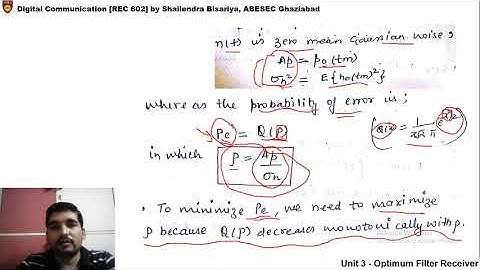 Digital Communication [REC 602] by Shailendra Bisariya, ABESEC Ghaziabad
n(t) is zero mean Gaussian noise,
Ap = po(tm)
σn² = E{no(tm)²}
where as the probability of error is;
Pe = Q(ρ)
in which
ρ = Ap/σn
• To minimize Pe, we need to maximize
ρ because Q(ρ) decreases monotonically with ρ.
Unit 3 - Optimum Filter Receiver